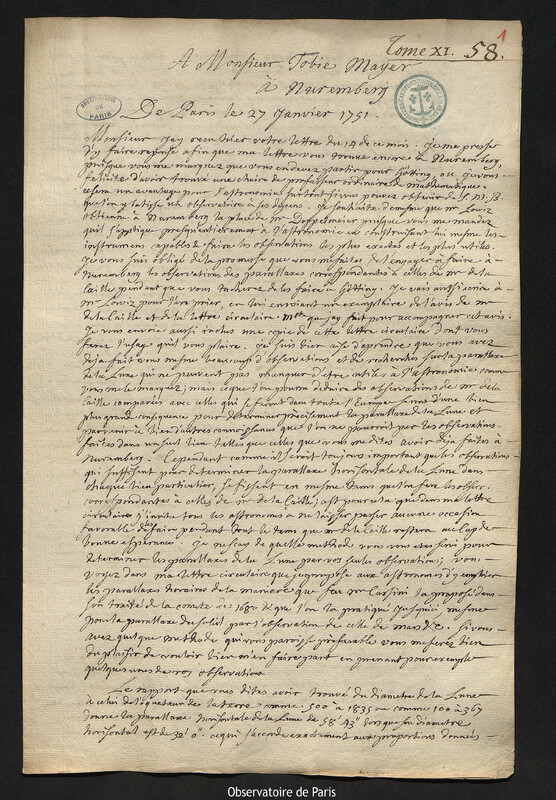 1
Tome XI. 58.
A Monsieur Tobie Mayer
à Nuremberg
De Paris le 27 Janvier 1751.
Monsieur Jay receu hier votre lettre du 14 de ce mois. Je me presse
d'y faire reponse afin que ma lettre vous trouve encore à Nuremberg,
puisque vous me marquez que vous en devez partir pour Götting, où je vous
felicite d'avoir trouvé une chaire de professeur ordinaire de Mathematique.
ce sera un avantage pour l'astronomie surtout si vous pouvez obtenir de S. M. B.
qu'on y batisse un observatoire à ses depens. Je souhaite de mesme que Mr Lowiz
obtienne à Nuremberg la place de Mr Doppelmaier puisque vous me mandez
qu'il s'applique presqu'entierement à l'astronomie en construisant lui mesme les
instrumens capables de faire les observations les plus exactes et les plus utiles.
Je vous suis obligé de la promesse que vous me faites de l'engager à faire à
Nuremberg les observations des parallaxes correspondantes à celles de Mr de la
Caille pendant que vous tacherez de les faire à Götting. Je vais aussi ecrire à
Mr Lowiz pour l'en prier, en lui envoiant un exemplaire de l'avis de Mr
de la Caille et de la lettre circulaire que jay fait pour accompagner cet avis.
Je vous envoie aussi inclus une copie de cette lettre circulaire dont vous
ferez l'usage qu'il vous plaira. Je suis bien aise d'aprendre que vous avez
deja fait vous mesme beaucoup d'observations et de recherches sur la parallaxe
de la Lune qui ne peuvent pas manquer d'être utiles à l'astronomie comme
vous me le marquez; mais ce que l'on pourra deduire des observations de Mr de la
Caille comparées avec celles qui se feront dans toute l'Europe sera d'une bien
plus grande consequence pour determiner precisement la parallaxe de la Lune et
parvenir à bien d'autres connoissances que l'on ne pourroit par les observations
faites dans un seul lieu telles que celles que vous me dites avoir deja faites à
Nuremberg. Cependant comme il seroit toujours important que les observations
qui suffisent pour determiner la parallaxe horisontale de la Lune dans
chaque lieu particulier, se fissent en mesme tems que
correspondantes à celles de Mr de la Caille; c'est pour cela que dans ma lettre
circulaire j'invite tous les astronomes à ne laisser passer aucune occasion
favorable d'en faire pendant tout le tems que Mr de la Caille restera au Cap de
bonne esperance. Je ne sçay de quelle methode vous vous etes servi pour
determiner les parallaxes de la Lune par vos seules observations; vous
voyez dans ma lettre circulaire que je propose aux astronomes d'y emploier
les parallaxes horaires de la maniere que feu Mr Cassini l'a proposé dans
son traité de la comete de 1680 et que l'on l'a pratiqué jusqu'ici mesme
pour la parallaxe du soleil par l'observation de celle de mars &c. Si vous
avez quelque methode qui vous paroisse preferable vous me ferez bien
du plaisir de vouloir bien m'en faire part en prenant pour exemple
quelques unes de vos observations
Le rapport que vous dites avoir trouvé du diametre de la Lune
à celui de l'équateur de la terre comme 500 à 1835 ou comme 100 à 367
donne la parallaxe horisontale de la Lune de 58' 43" lorsque son diametre
horisontal est de 32' 0". ce qui s'accorde exactement aux proportions données
Observatoire de Paris